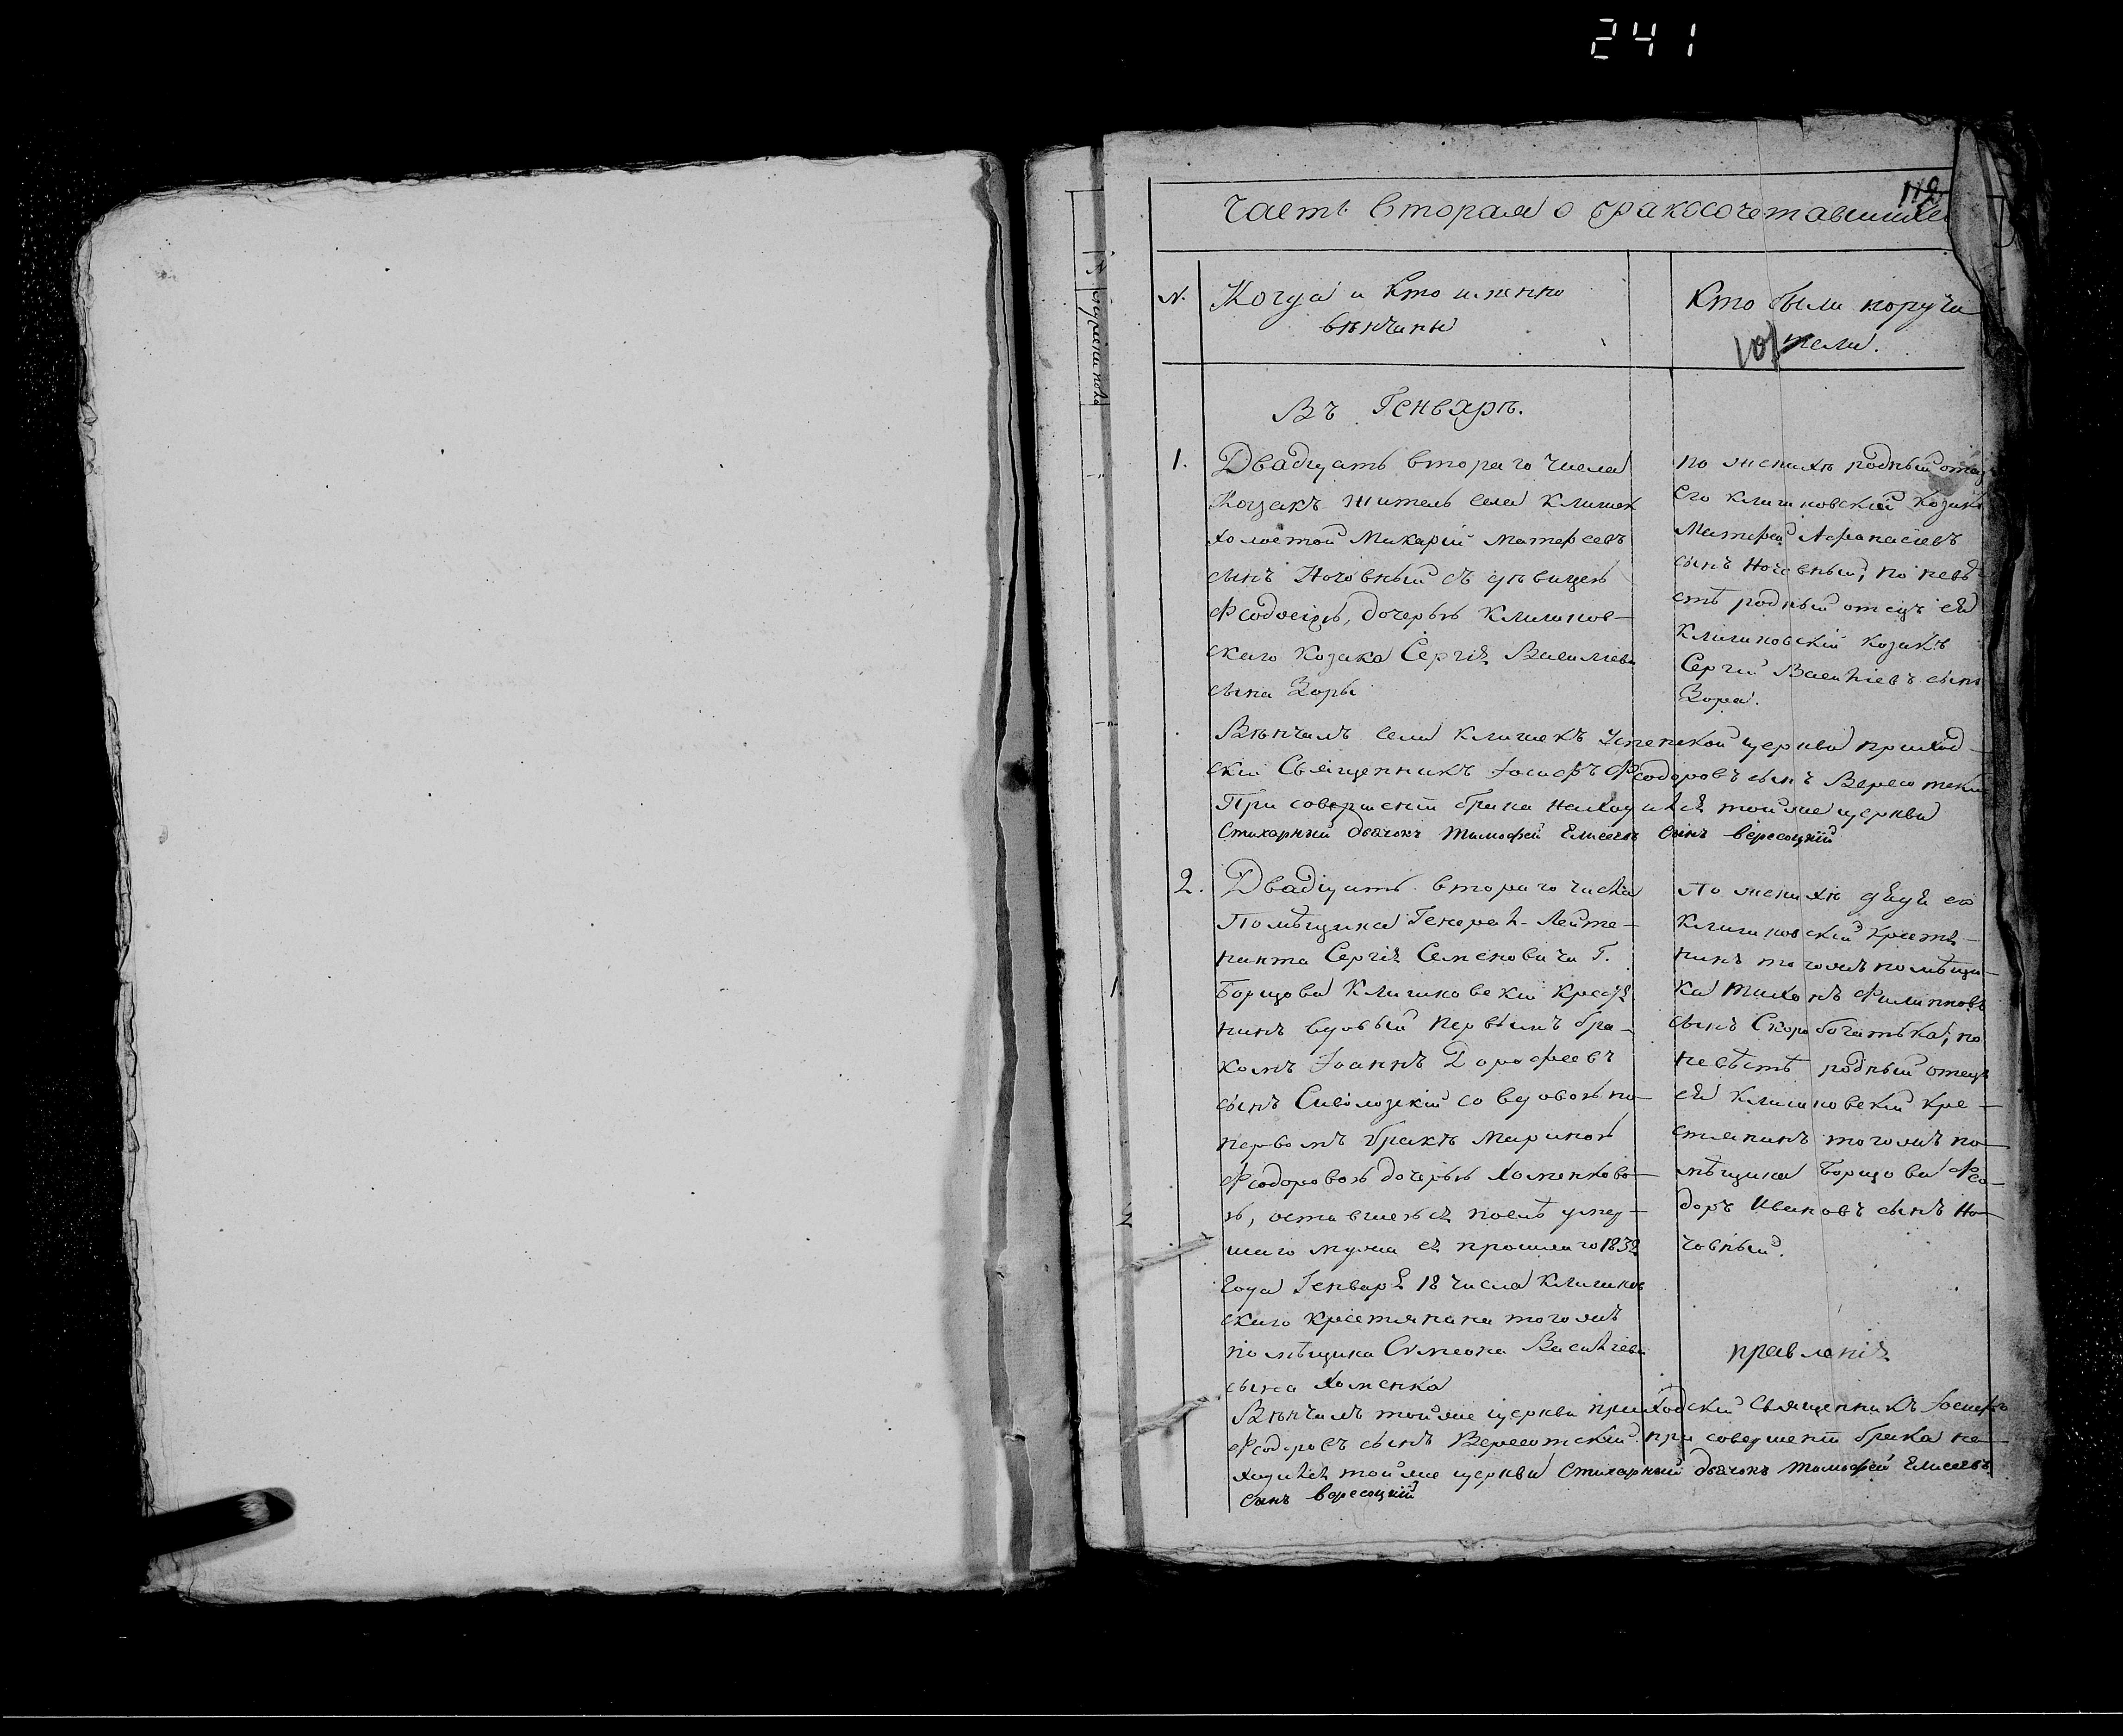 241
112
Часть вторая о бракосочетавшихся
№. Когда и кто именно
вѣнчаны
Кто были поручи
101
тели.
Въ Генварѣ.
1. Двадцать втораго числа
Козакъ житель села Клишек
холостой Макарій Матфеевъ
сынъ Ночовный съ дѣвицею
Феодосіею, дочерью Клишков-
скаго Козака Сергія Васильева
сына Зоры
по женихѣ родный отецъ
его клишковскій козакъ
Матфей Афанасіевъ
сынъ Ночовный, по невѣ
стѣ родный отецъ ея
Клишковскій козакъ
Сергій Василіевъ сынъ
Зора.
Вѣнчалъ села Клишекъ Успенской церкви приход-
скій Священникъ Іосифъ Феодоровъ сынъ Вересотскій
При совершеніи брака находился тойже церкви
Стихарный дьячокъ Тимофей Елисеевъ сынъ вересоцкій
2. Двадцать втораго числа
Помѣщика Генерал-Лейте-
нанта Сергія Семеновича Г.
Борщова Клишковскій крестя
нинъ вдовый первымъ бра-
комъ Іоаннъ Дорофеевъ
сынъ Сиволозкій со вдовою по
первомъ бракѣ Мариною
Феодоровою дочерью Хоменково-
ю, оставшеюся послѣ умер-
шаго мужа ея прошлаго 1832
Года Генваря 18 числа Клишков
скаго крестянина тогожъ
помѣщика Симеона Василіева
сына Хоменка
По женихѣ дядя его
Клишковскій крестя-
нинъ тогожъ помѣщи-
ка Тихонъ Филиповъ
сынъ Скоробогатька, по
невѣстѣ родный отецъ
ея Клишковскій кре-
стянинъ тогожъ по-
мѣщика Борщова Фео-
доръ Ивановъ сынъ Но-
човный.
правленія
Вѣнчалъ тойже церкви приходскій священникъ Іосифъ
Феодоровъ сынъ Вересотскій при совершеніи брака на-
ходился тойже церкви Стихарный дьячокъ Тимофей Елисеевъ
сынъ вересоцкій